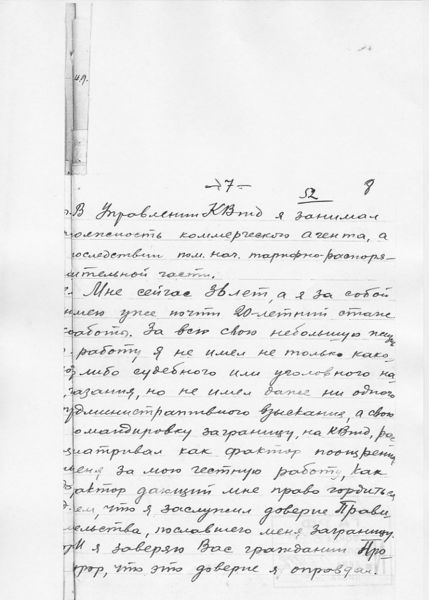 н.л.
-7-
52 8
В Управлении КВжд я занимал
должность коммерческого агента, а
последствии пом. нач. тарифно-распоря-
дительной части.
Мне сейчас 38 лет, а я за собой
имею уже почти 20-летний стаж
работы. За всю свою небольшую
работу я не имел не только како-
го либо судебного или уголовного на-
казания, но не имел даже ни одного
административного взыскания, а свою
командировку заграницу, на КВжд, рас-
сматривал как фактор поощрения
меня за мою честную работу, как
фактор дающий мне право гордиться
тем, что я заслужил доверие Прави-
тельства, пославшего меня заграницу.
И я заверяю Вас гражданин Про-
курор, что это доверие я оправдал.